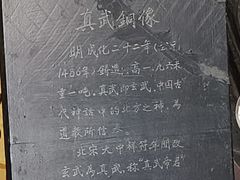 真武銅像
明成化二十二年(公元
1486年)鑄造,高一.九六米
重一吨,真武即玄武,中国古
代神話中的北方之神,為
道教所信
北宋大中祥符年間改
玄武為真武,称“真武帝君”